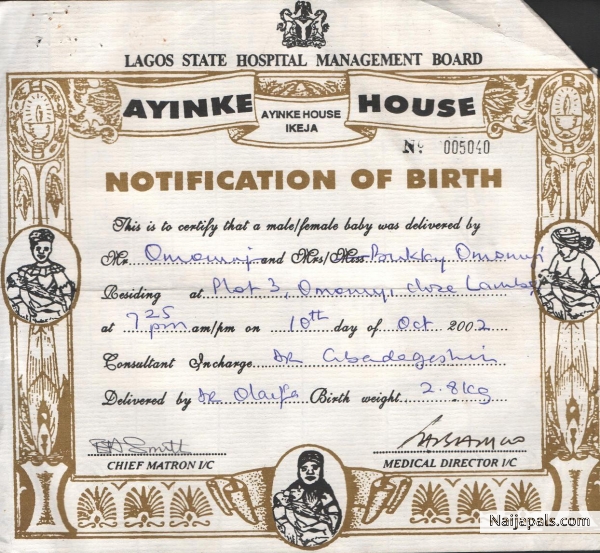 LAGOS STATE HOSPITAL MANAGEMENT BOARD
AYINKE HOUSE
AYINKE HOUSE
IKEJA
Nº 005040
NOTIFICATION OF BIRTH
This is to certify that a male/female baby was delivered by
Mr. Omomuyi and Mrs/Miss Bukky Omomuyi
Residing at Plot 3, Omomuyi close
at 7 25 pm am/pm on 10th day of Oct 2002
Consultant Incharge DR
Delivered by DR Olaifa Birth weight 2.8kg
CHIEF MATRON I/C
MEDICAL DIRECTOR I/C
Naijapals.com